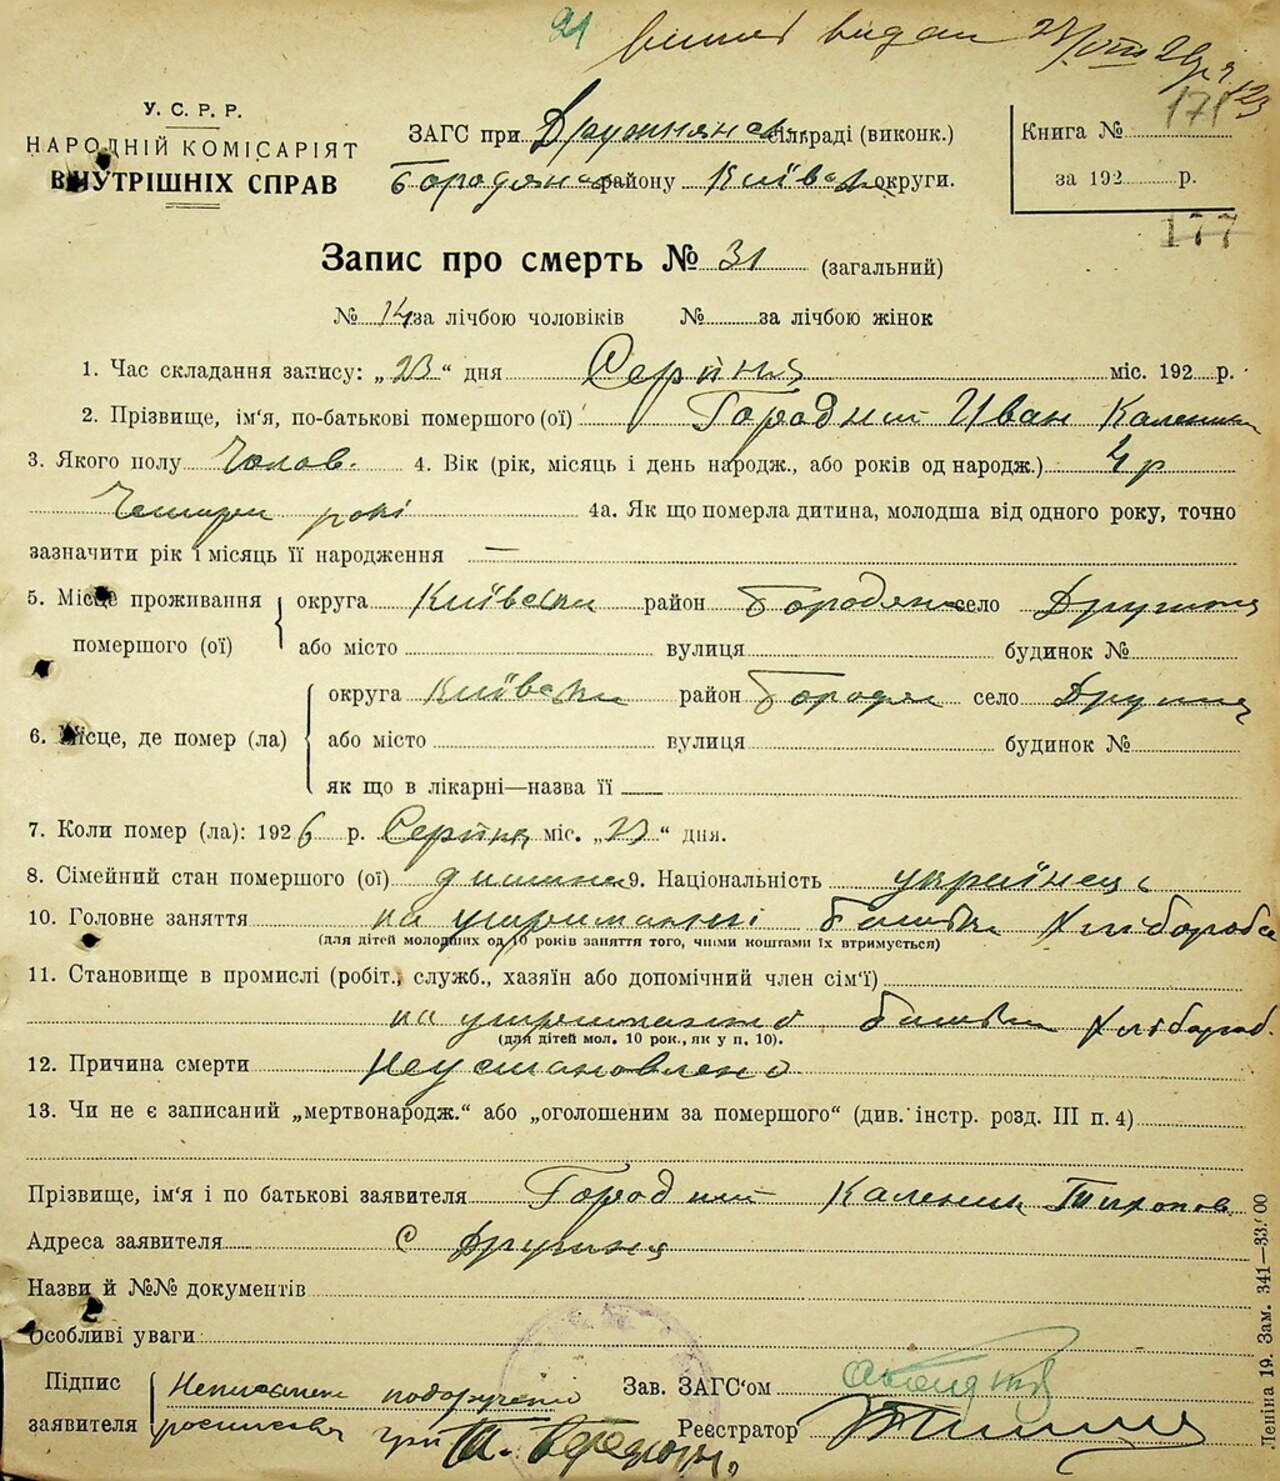 21 випис видан 23/VIII 26 р
У. С. Р. Р.
НАРОДНІЙ КОМІСАРІЯТ
ВНУТРІШНІХ СПРАВ
ЗАГС при Дружнянск сільраді (виконк.)
Бородянск району Київск округи.
Книга № 171
за 192 р.
177
Запис про смерть № 31 (загальний)
№ 14 за лічбою чоловіків № за лічбою жінок
1. Час складання запису: „23“ дня Серпня міс. 192 р.
2. Прізвище, ім'я, по-батькові помершого (ої) Городний Иван Каленик
3. Якого полу Чолов. 4. Вік (рік, місяць і день народж., або років од народж.) 4 р
Чотири рокі 4а. Як що померла дитина, молодша від одного року, точно
зазначити рік і місяць її народження —
5. Місце проживання помершого (ої) округа Київська район Бородянс село Дружня
або місто вулиця будинок №
6. Місце, де помер (ла) округа Київська район Бородян село Дружня
або місто вулиця будинок №
як що в лікарні—назва її
7. Коли помер (ла): 1926 р. Серпня міс. „23“ дня.
8. Сімейний стан помершого (ої) дитина 9. Національність українець
10. Головне заняття на утриманні батька хлібороба
(для дітей молодших од 10 років заняття того, чиїми коштами їх втримується)
11. Становище в промислі (робіт., служб., хазяїн або допомічний член сім'ї)
на утриманню батька хлібороб.
(для дітей мол. 10 рок., як у п. 10).
12. Причина смерти Неустановлено
13. Чи не є записаний „мертвонародж.“ або „оголошеним за помершого“ (див. інстр. розд. III п. 4)
Прізвище, ім'я і по батькові заявителя Городний Каленик Тихонов
Адреса заявителя С Дружня
Назви й №№ документів
Особливі уваги
Підпис заявителя Неписьмен подоручению
росписався
Зав. ЗАГС'ом
Реєстратор
Леніна 19. Зам. 341—33.000